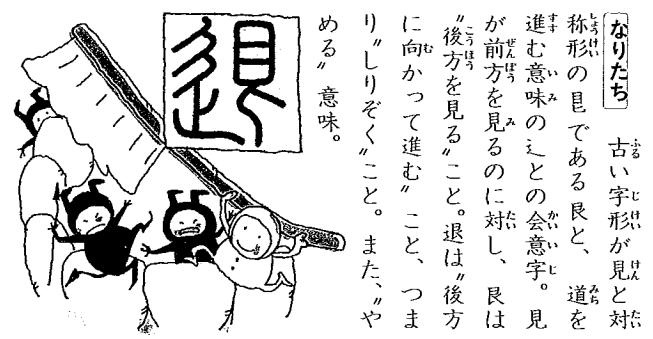 なりたち
古い字形が見と対
称形のである艮と、道を
進む意味の辶との会意字。見
が前方を見るのに対し、艮は
〝後方を見る〟こと。退は〝後方
に向かって進む〟こと、つま
り〝しりぞく〟こと。また、〝や
める〟意味。